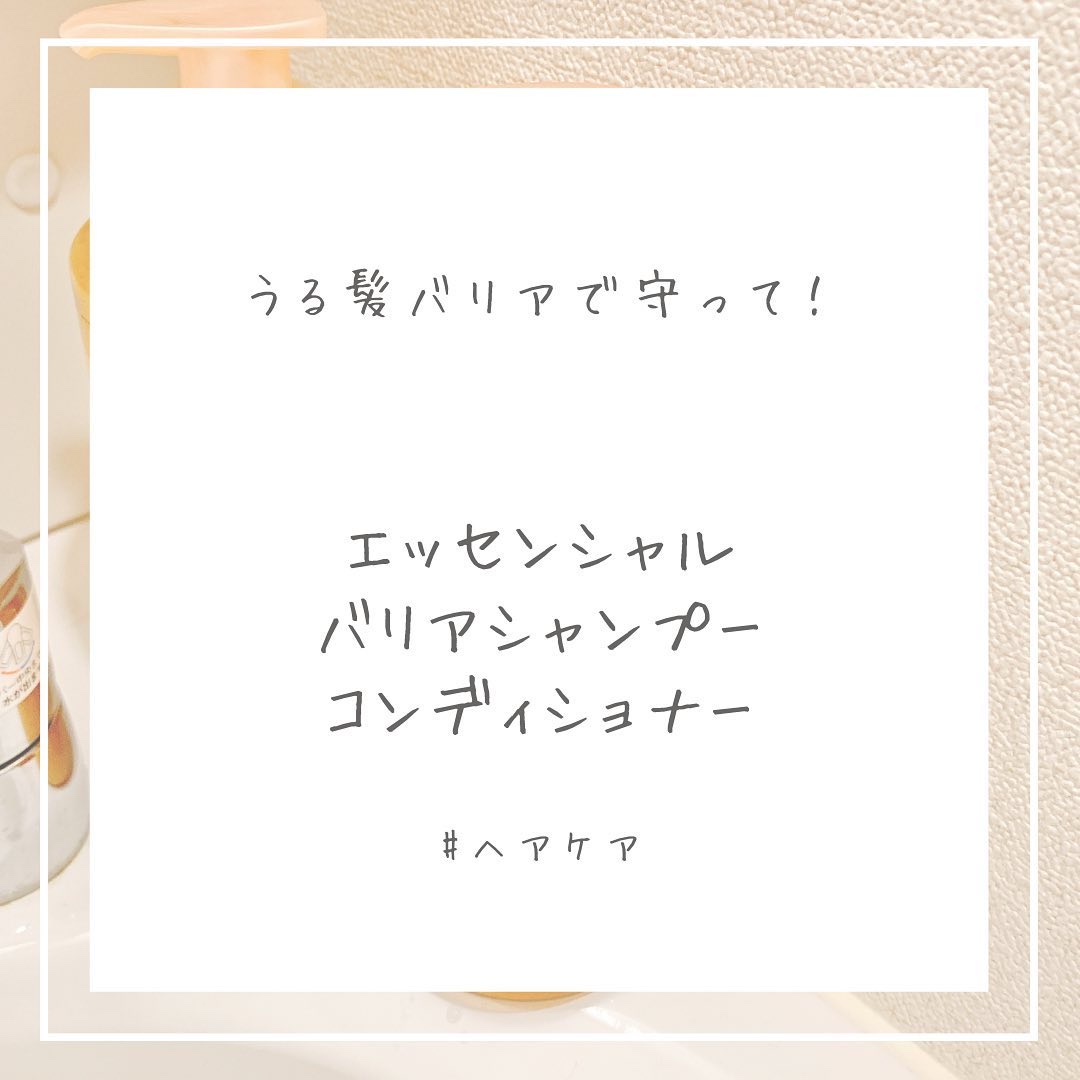 うる髪バリアで守って!
エッセンシャル
バリアシャンプー
コンディショナー
#ヘアケア